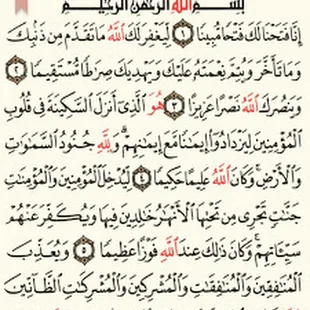 بِسْمِ ٱللَّهِ ٱلرَّحْمَٰنِ ٱلرَّحِيمِ
إِنَّا فَتَحْنَا لَكَ فَتْحًا مُّبِينًا ١ لِّيَغْفِرَ لَكَ ٱللَّهُ مَا تَقَدَّمَ مِن ذَنۢبِكَ
وَمَا تَأَخَّرَ وَيُتِمَّ نِعْمَتَهُۥ عَلَيْكَ وَيَهْدِيَكَ صِرَٰطًا مُّسْتَقِيمًا ٢
وَيَنصُرَكَ ٱللَّهُ نَصْرًا عَزِيزًا ٣ هُوَ ٱلَّذِىٓ أَنزَلَ ٱلسَّكِينَةَ فِى قُلُوبِ
ٱلْمُؤْمِنِينَ لِيَزْدَادُوٓا۟ إِيمَٰنًا مَّعَ إِيمَٰنِهِمْ ۗ وَلِلَّهِ جُنُودُ ٱلسَّمَٰوَٰتِ
وَٱلْأَرْضِ ۚ وَكَانَ ٱللَّهُ عَلِيمًا حَكِيمًا ٤ لِّيُدْخِلَ ٱلْمُؤْمِنِينَ وَٱلْمُؤْمِنَٰتِ
جَنَّٰتٍ تَجْرِى مِن تَحْتِهَا ٱلْأَنْهَٰرُ خَٰلِدِينَ فِيهَا وَيُكَفِّرَ عَنْهُمْ
سَيِّـَٔاتِهِمْ ۚ وَكَانَ ذَٰلِكَ عِندَ ٱللَّهِ فَوْزًا عَظِيمًا ٥ وَيُعَذِّبَ
ٱلْمُنَٰفِقِينَ وَٱلْمُنَٰفِقَٰتِ وَٱلْمُشْرِكِينَ وَٱلْمُشْرِكَٰتِ ٱلظَّآنِّينَ